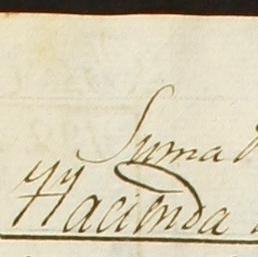 Suma
Hacienda